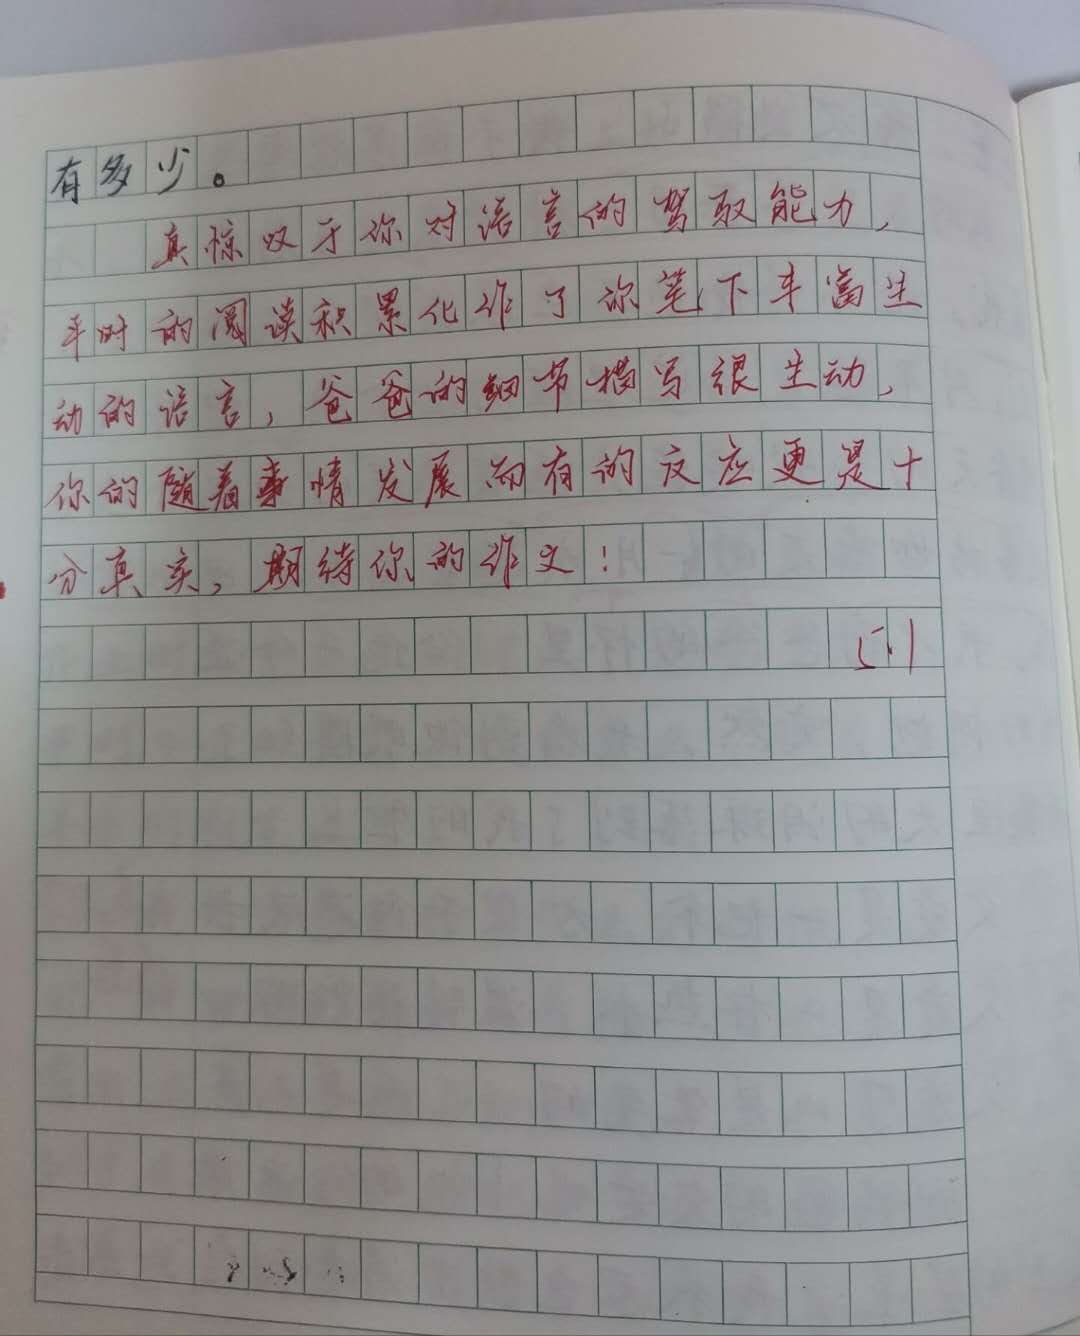 有多少。
真惊叹于你对语言的驾驭能力,
平时的阅读积累化作了你笔下丰富生
动的语言,爸爸的细节描写很生动,
你的随着事情发展而有的反应更是十
分真实,期待你的作文!